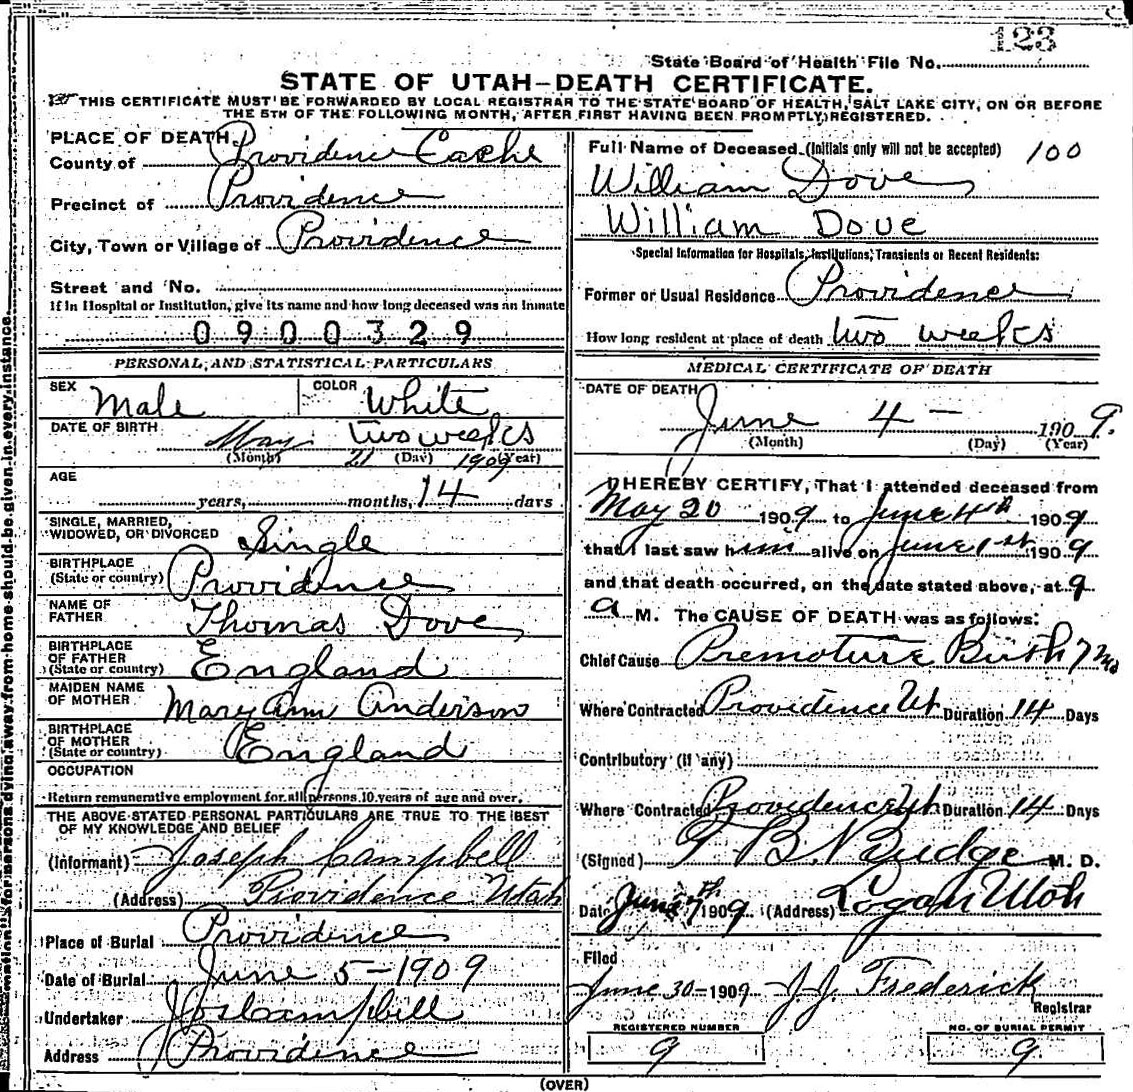 123
State Board of Health File No.
STATE OF UTAH—DEATH CERTIFICATE.
THIS CERTIFICATE MUST BE FORWARDED BY LOCAL REGISTRAR TO THE STATE BOARD OF HEALTH, SALT LAKE CITY, ON OR BEFORE
THE 5TH OF THE FOLLOWING MONTH, AFTER FIRST HAVING BEEN PROMPTLY REGISTERED.
PLACE OF DEATH
County of Providence Cache
Precinct of Providence
City, Town or Village of Providence
Street and No.
If in Hospital or Institution, give its name and how long deceased was an Inmate
0900329
PERSONAL AND STATISTICAL PARTICULARS
SEX Male COLOR White
DATE OF BIRTH May two weeks
(Month) 21 (Day) 1909 (Year)
AGE years, months, 14 days
SINGLE, MARRIED,
WIDOWED, OR DIVORCED Single
BIRTHPLACE
(State or country) Providence
NAME OF
FATHER Thomas Dove
BIRTHPLACE
OF FATHER
(State or country) England
MAIDEN NAME
OF MOTHER Mary Ann Anderson
BIRTHPLACE
OF MOTHER
(State or country) England
OCCUPATION
Return remunerative employment for all persons 10 years of age and over.
THE ABOVE STATED PERSONAL PARTICULARS ARE TRUE TO THE BEST
OF MY KNOWLEDGE AND BELIEF
(Informant) Joseph Campbell
(Address) Providence Utah
Place of Burial Providence
Date of Burial June 5-1909
Undertaker Jos Campbell
Address Providence
Full Name of Deceased (Initials only will not be accepted) 100
William Dove
William Dove
Special Information for Hospitals, Institutions, Transients or Recent Residents:
Former or Usual Residence Providence
How long resident at place of death two weeks
MEDICAL CERTIFICATE OF DEATH
DATE OF DEATH
June 4 — 1909.
(Month) (Day) (Year)
I HEREBY CERTIFY, That I attended deceased from
May 20 1909 to June 4th 1909
that I last saw him alive on June 1st 1909
and that death occurred, on the date stated above, at 9
a M. The CAUSE OF DEATH was as follows:
Chief Cause Premature Birth 7 mo
Where Contracted Providence Ut Duration 14 Days
Contributory (if any)
Where Contracted Providence Ut Duration 14 Days
(Signed) B. Budge M. D.
Date June 7th 1909 (Address) Logan Utah
Filed
June 30-1909 J.J. Frederick
Registrar
REGISTERED NUMBER NO. OF BURIAL PERMIT
9 9
(OVER)